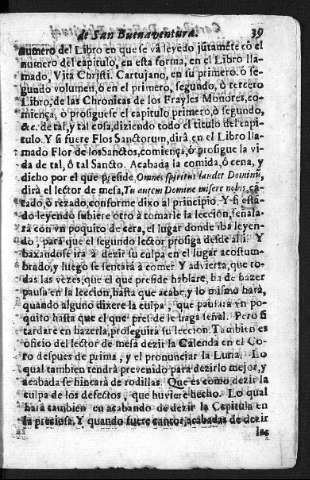 de San Buenaventura. 39
numero del Libro en que se va leyedo jutamēte cō el
numero del capitulo, en esta forma, en el Libro lla-
mado, Vita Christi. Cartujano, en su primero. ò se-
gundo volumen, ò en el primero, segundo, ò tercero
Libro, de las Chronicas de los Frayles Monores, co-
miença, ò prosiguese el capitulo primero, ò segundo,
&c. de tal, y tal cosa, diziendo todo el titulo del capi-
tulo. Y si fuere Flos Sanctorum, dirà en el Libro lla-
mado Flor de los Sanctos, comiença, ò prosigue la vi-
da de tal, ò tal Sancto. Acabada la comida, ò cena, y
dicho por el que preside Omnes spiritus laudet Dominũ,
dirà el lector de mesa, Tu autem Domine misere nobis, ca-
tado, ò rezado, conforme dixo al principio. Y si estā-
do leyendo subiere otro à tomarle la lección, señala-
rà con vn poquito de cera, el lugar donde iba leyen-
do, para que el segundo lector prosiga desde allà. Y
baxandose irà à dezir su culpa en el lugar acostum-
brado, y luego se sentarà à comer Y advierta, que to-
das las vezes, que el que preside hablare, ha de hazer
pausa en la lección, hasta que acabe, y lo mismo harà,
quando alguno dixere la culpa, que pausarà vn po-
quito hasta que el que preside le haga señal. Pero si
tardare en hazerla, proseguirà su leccion Tambien es
oficio del lector de mesa dezir la Calenda en el Co-
ro despues de prima, y el pronunciar la Luna. Lo
qual tambien tendrà prevenido para dezirlo mejor, y
acabada se hincarà de rodillas Que es como dezir la
culpa de los defectos, que huviere hecho. Lo qual
harà tambien en acabando de dezir la Capitula en
la preciosa, Y quando fuere cantor, acabadas de dezir
las